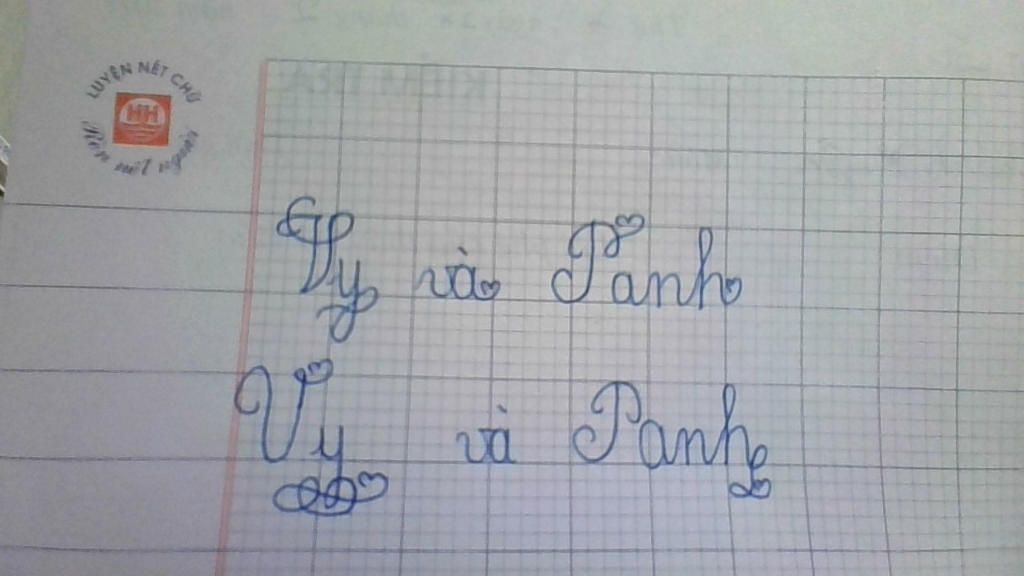 LUYỆN NÉT CHỮ
HH
Rèn nết người
Vy và Panh
Vy và Panh